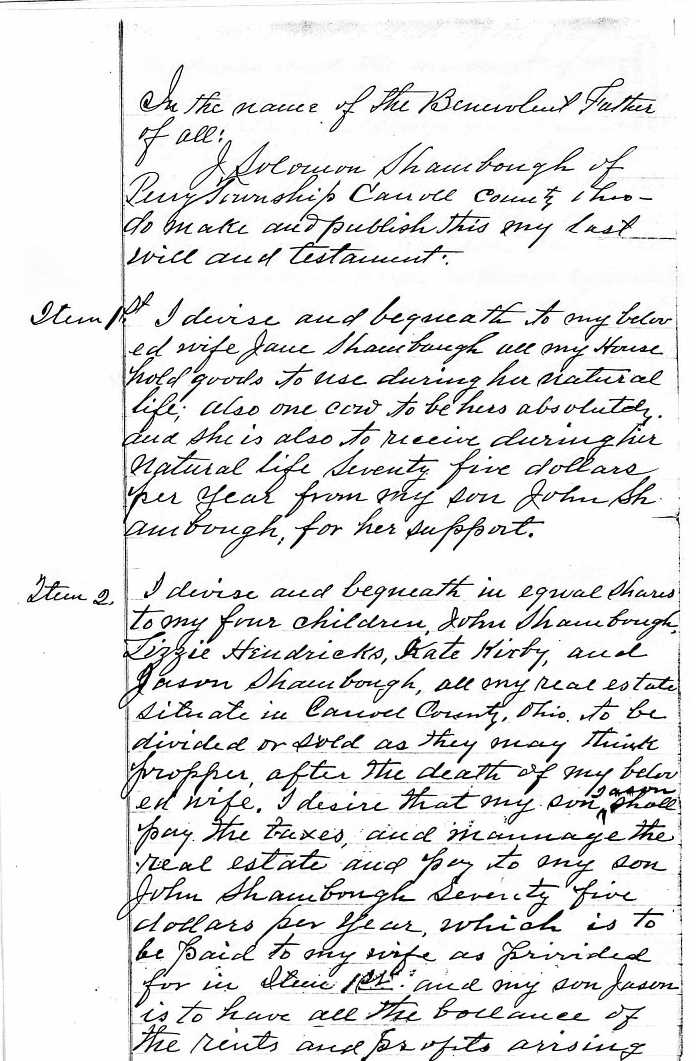 In the name of the Benevolent Father
of all:
I Solomon Shambough of
Perry Township Carroll County Ohio
do make and publish this my last
will and testament:
Item 1st I devise and bequeath to my belov
ed wife Jane Shambaugh all my House
hold goods to use during her natural
life; also one cow to be hers absolutely.
and she is also to receive during her
Natural life Seventy five dollars
per Year from my son John Sh
ambough, for her support.
Item 2. I devise and bequeath in equal shares
to my four children, John Shambough,
Lizzie Hendricks, Kate Kirby, and
Jason Shambough, all my real estate
situate in Carroll County, Ohio. to be
divided or sold as they may think
propper, after the death of my belov
ed wife. I desire that my son Jason shall
pay the taxes, and mannage the
real estate and pay to my son
John Shambough Seventy five
dollars per Year, which is to
be paid to my wife as privided
for in Item 1st: and my son Jason
is to have all the ballance of
the rents and profits arising